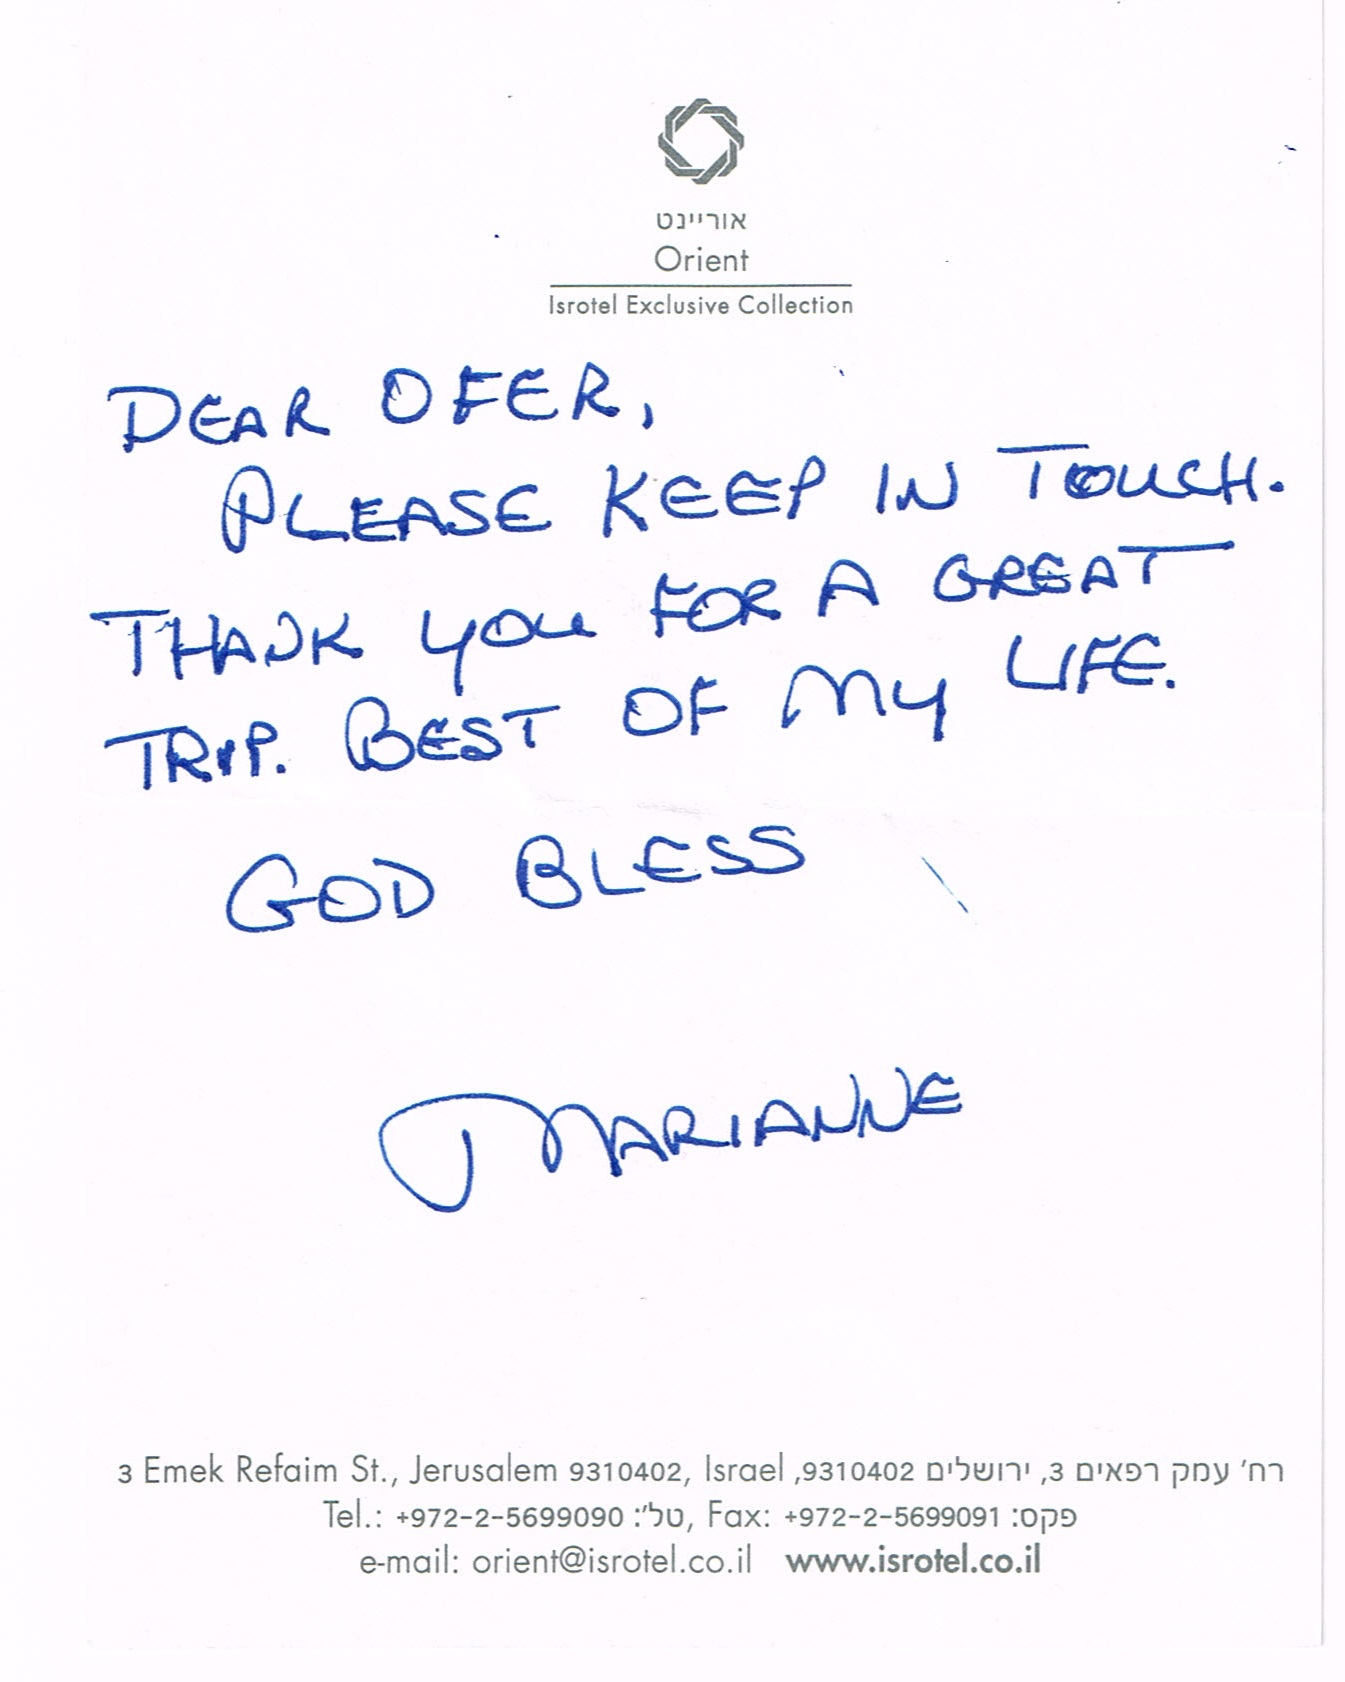 אוריינט
Orient
Isrotel Exclusive Collection
DEAR OFER,
PLEASE KEEP IN TOUCH.
THANK YOU FOR A GREAT
TRIP. BEST OF MY LIFE.
GOD BLESS
MARIANNE
3 Emek Refaim St., Jerusalem 9310402, Israel רח' עמק רפאים 3, ירושלים 9310402,
Tel.: +972-2-5699090 :'טל, Fax: +972-2-5699091 :פקס
e-mail: orient@isrotel.co.il www.isrotel.co.il